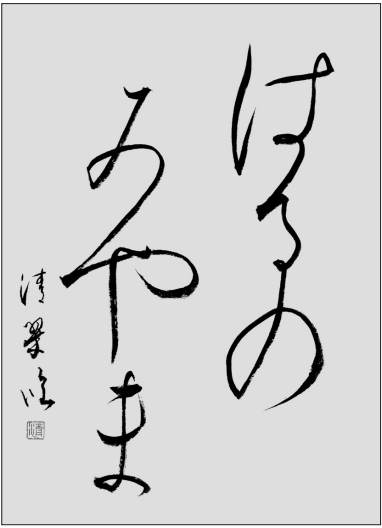 はるの
みやま
清翠臨